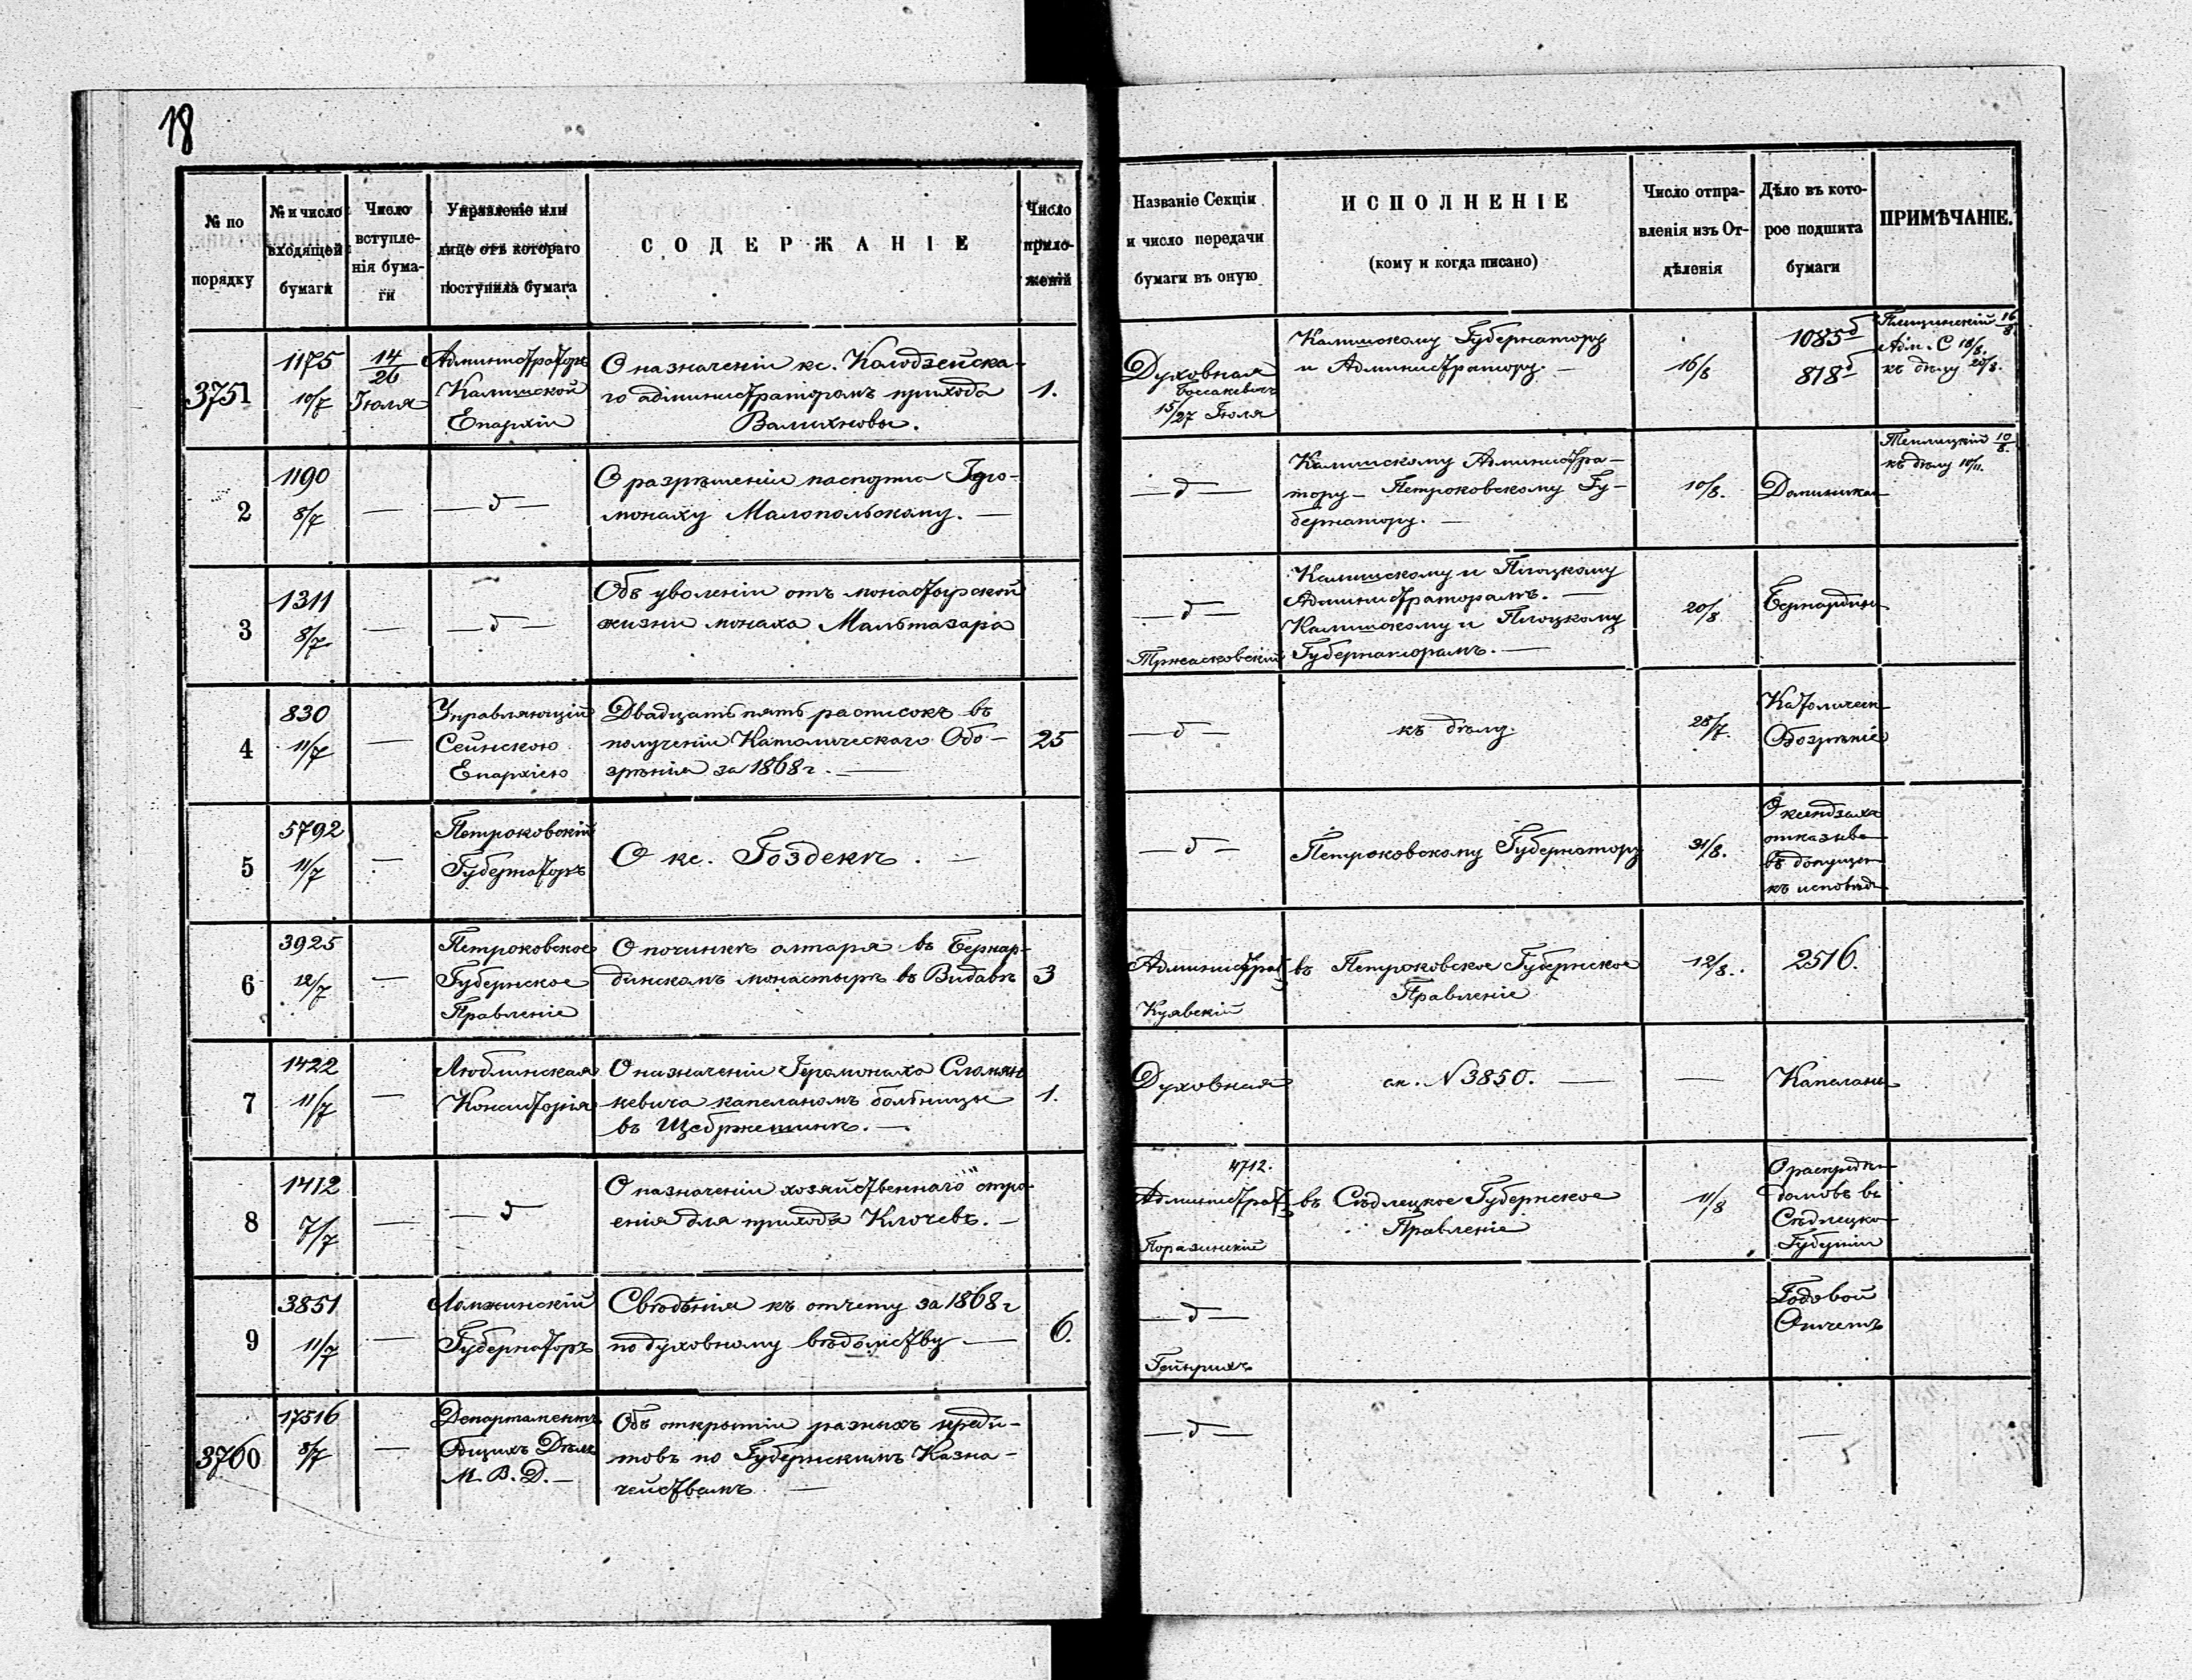 18
№ по порядку
№ и число входящей бумаги
Число вступле-
нія бума-
ги
Управленіе или
лице отъ котораго
поступила бумага
СОДЕРЖАНІЕ
Число
прило-
женій
Названіе Секціи
и число передачи
бумаги въ оную
ИСПОЛНЕНІЕ
(кому и когда писано)
Число отпра-
вленія изъ От-
дѣленія
Дѣло въ кото-
рое подшита
бумаги
ПРИМѢЧАНІЕ.
3751
1175
10/7
14/26
Іюля
Администраторъ
Калишской
Епархіи
О назначеніи кс. Колодзейска-
го администраторомъ прихода
Валихновы.
1.
Духовная
15/27 Іюля
Калишскому Губернатору
и Администратору. —
16/8
1085б
818б
16/8
Адм. С 18/8.
къ дѣлу 20/8.
2
1190
8/7
—
— д —
О разрѣшеніи паспорта Іеро-
монаху Малопольскому. —
— д —
Калишскому Администра-
тору — Петроковскому Гу-
бернатору. —
10/8.
Доминика
Теплицкій 10/8.
къ дѣлу 10/11.
3
1311
8/7
—
— д —
Объ уволеніи отъ монастырской
жизни монаха Мальтазара
— д —
Тржасковскій
Калишскому и Плоцкому
Администраторамъ. —
Калишскому и Плоцкому
Губернаторамъ. —
20/8
Бернардин
4
830
11/7
—
Управляющій
Сейнскою
Епархіею
Двадцать пять расписокъ въ
полученіи Католическаго Обо-
зрѣнія за 1868 г. —
25
— д —
къ дѣлу.
28/7.
Католическ
Обозрѣніе
5
5792
11/7
—
Петроковскій
Губернаторъ
О кс. Гоздекѣ. —
— д —
Петроковскому Губернатору
31/8.
О ксендзахъ
отказыва
въ допущен
къ исповѣди
6
3925
12/7
—
Петроковское
Губернское
Правленіе
О починкѣ алтаря въ Бернар-
динскомъ монастырѣ въ Видавѣ
3
Администрат
Куявскій
въ Петроковское Губернское
Правленіе
12/8.
2516.
7
1422
11/7
—
Люблинская
Консисторія
О назначеніи Іеромонаха Сломян
кевича капеланомъ больницы
въ Щебржешинѣ. —
1.
Духовная
см. N 3850. —
—
Капеланы
8
1412
7/7
—
— д
О назначеніи хозяйственнаго стро-
енія для прихода Клочевъ. —
4712.
Администрат
Поразинскій
въ Сѣдлецкое Губернское
Правленіе
11/8
О распредѣл
домовъ въ
Сѣдлецко
Губерніи
9
3851
11/7
—
Ломжинскій
Губернаторъ
Свѣдѣнія къ отчету за 1868 г
по духовному вѣдомству —
6.
— д —
Гейнрихъ
Годовой
Отчетъ
3760
17516
8/7
—
Департаментъ
Общихъ Дѣлъ
М. В. Д. —
Объ открытіи разныхъ креди-
товъ по Губернскимъ Казна-
чействамъ —
— д —
—